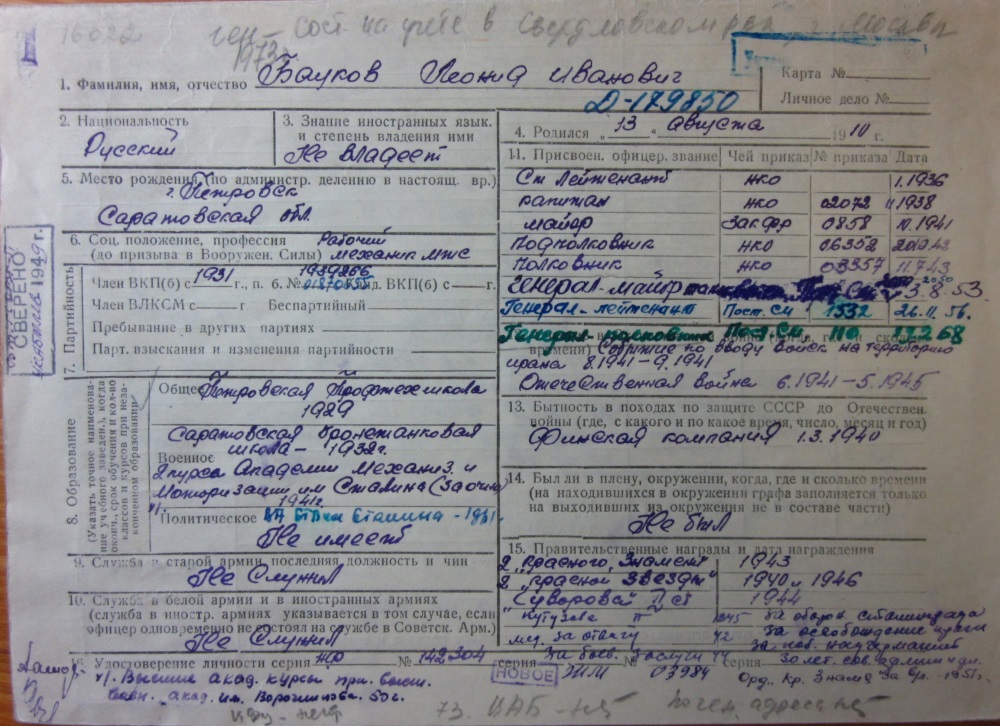 16022 ген- сост. на учете в Свердловском рай г. Москвы
1973г.
1. Фамилия, имя, отчество Бауков Леонид Иванович
Карта №
Д-179850
Личное дело №
2. Национальность
Русский
3. Знание иностранных язык.
и степень владения ими
Не владеет
4. Родился „ 13 " августа 1910 г.
5. Место рождения (по администр. делению в настоящ. вр.)
г. Петровск
Саратовская обл.
11. Присвоен. офицер. звание Чей приказ № приказа Дата
Ст лейтенант НКО 1.1936
капитан НКО 02072 1938
майор Зак фр 0858 10.1941
подполковник НКО 06352
полковник НКО 03357
Генерал-майор 3.8.53
Генерал-лейтенант Пост. СМ 1532 26.11.56.
Генерал-полковник Пост. СМ 110 19.2.68
6. Соц. положение, профессия Рабочий
(до призыва в Вооружен. Силы) механик МТС
СВЕРЕНО
1949 г.
7. Партийность
Член ВКП(б) с 1931 г., п. б. № 01870455 Канд. ВКП(б) с — г.
Член ВЛКСМ с — г. Беспартийный
Пребывание в других партиях
Парт. взыскания и изменения партийности
времени) вводу войск на территорию
ирана 8.1941 – 9.1941
Отечественная война 6.1941 – 5.1945
8. Образование
(Указать точное наименование учебного заведен.), когда окончил, срок обучения и кол-во классов и курсов при незаконченном образовании
Общее Петровская Профтехшкола
1929
Саратовская бронетанковая
школа – 1932г.
Военное
2 курса Академии механиз. и
Моторизации им Сталина (заочно)
1941г.
Политическое
Не имеет
13. Бытность в походах по защите СССР до Отечествен.
войны (где, с какого и по какое время, число, месяц и год)
Финская компания 1.3.1940
14. Был ли в плену, окружении, когда, где и сколько времени
(на находившихся в окружении графа заполняется только
на выходивших из окружения не в составе части)
Не был
9. Служба в старой армии, последняя должность и чин
Не служил
10. Служба в белой армии и в иностранных армиях
(служба в иностр. армиях указывается в том случае, если
офицер одновременно не состоял на службе в Советск. Арм.)
Не служил
15. Правительственные награды и дата награждения
2 „красного Знамени" 1943
2 „красной звезды" 1940 и 1946
„Суворова II ст 1944
„Кутузова II 1945 За оборон. Сталинграда
мед. за отвагу 42 За освобождение Праги
За боев. заслуги 44 За поб. над Германией
30 лет. сов. армии и
Орд. Кр. Знамя 1951г.
16. Удостоверение личности серия ЖР № 142304 серия № серия
НОВОЕ
03984
x/. Высшие акад. курсы при высш.
воен. акад. им. Ворошилова. 50 г.